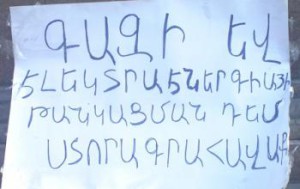 ԳԱԶԻ ԵՎ
ԷԼԵԿՏՐԱԷՆԵՐԳԻԱՅԻ
ԹԱՆԿԱՑՄԱՆ ԴԵՄ
ՍՏՈՐԱԳՐԱՀԱՎԱՔ